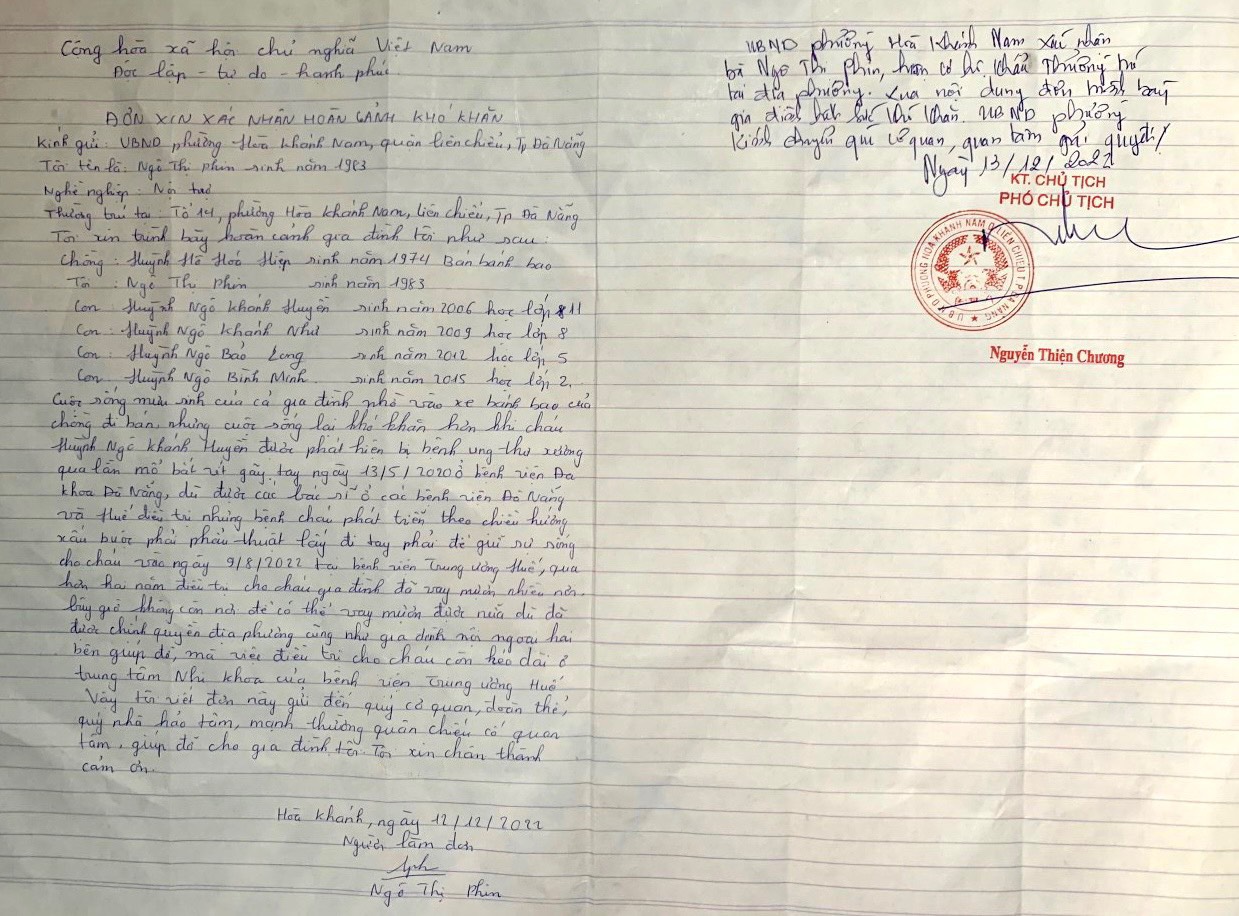 Cộng hòa xã hội chủ nghĩa Việt Nam
Độc lập - tự do - hạnh phúc
ĐƠN XIN XÁC NHẬN HOÀN CẢNH KHÓ KHĂN
Kính gửi: UBND phường Hòa Khánh Nam, quận liên chiểu, Tp Đà Nẵng
Tôi tên là: Ngô Thị phin sinh năm 1983
Nghề nghiệp: Nội trợ
Thường trú tại: Tổ 14, phường Hòa Khánh Nam, liên chiểu, Tp Đà Nẵng
Tôi xin trình bày hoàn cảnh gia đình tôi như sau:
Chồng: Huỳnh Hồ Hiệp sinh năm 1974 Bán bánh bao
Tôi: Ngô Thị phin sinh năm 1983
Con: Huỳnh Ngô Khánh Huyền sinh năm 2006 học lớp 11
Con: Huỳnh Ngô Khánh Như sinh năm 2009 học lớp 8
Con: Huỳnh Ngô Bảo Long sinh năm 2012 học lớp 5
Con: Huỳnh Ngô Bình Minh sinh năm 2015 học lớp 2.
Cuộc sống mưu sinh của cả gia đình nhờ vào xe bánh bao của
chồng đi bán, nhưng cuộc sống lại khó khăn hơn khi cháu
Huỳnh Ngô Khánh Huyền được phát hiện bị bệnh ung thư xương
qua lần mổ bắt vít gãy tay ngày 13/5/2020 ở bệnh viện Đa
khoa Đà Nẵng, dù được các bác sĩ ở các bệnh viện Đà Nẵng
và Huế điều trị nhưng bệnh cháu phát triển theo chiều hướng
xấu buộc phải phẫu thuật lấy đi tay phải để giữ sự sống
cho cháu vào ngày 9/8/2022 tại bệnh viện Trung ương Huế, qua
hơn hai năm điều trị cho cháu gia đình đã vay mượn nhiều nơi.
bây giờ không còn nơi để có thể vay mượn được nữa dù đã
được chính quyền địa phương cũng như gia đình nội ngoại hai
bên giúp đỡ, mà việc điều trị cho cháu còn kéo dài ở
trung tâm Nhi khoa của bệnh viện Trung ương Huế
Vậy tôi viết đơn này gửi đến quý cơ quan, đoàn thể,
quý nhà hảo tâm, mạnh thường quân chiếu cố quan
tâm, giúp đỡ cho gia đình tôi. Tôi xin chân thành
cảm ơn.
Hòa Khánh, ngày 12/12/2022
Người làm đơn
Ngô Thị Phin
UBND phường Hoà Khánh Nam xác nhận
bà Ngô Thị phin, hiện có hộ khẩu Thường trú
tại địa phương. Qua nội dung đơn trình bày
gia đình hết sức khó khăn. UBND phường
kính chuyển quí cơ quan, quan tâm giải quyết/
Ngày 13/12/2022
KT. CHỦ TỊCH
PHÓ CHỦ TỊCH
U.B.N.D PHƯỜNG HÒA KHÁNH NAM Q.LIÊN CHIỂU T.P ĐÀ NẴNG
Nguyễn Thiện Chương